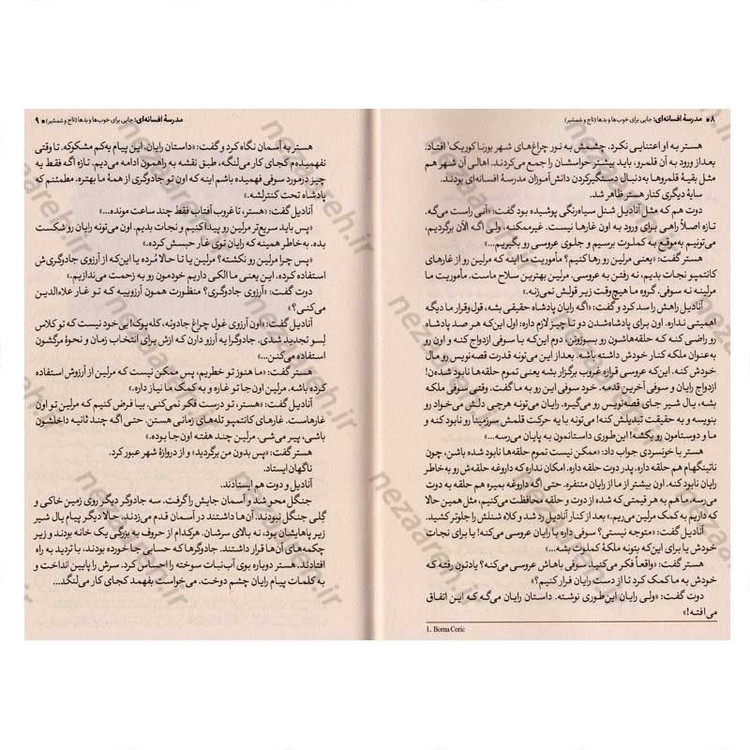 ۸ ■ مدرسهٔ افسانه‌ای: جایی برای خوب‌ها و بدها (تاج و شمشیر)
هستر به او اعتنایی نکرد. چشمش به نور چراغ‌های شهر بورنا کوریک¹ افتاد.
بعد از ورود به آن قلمرو، باید بیشتر حواسشان را جمع می‌کردند. اهالی آن شهر هم
مثل بقیهٔ قلمروها به دنبال دستگیرکردن دانش‌آموزان مدرسهٔ افسانه‌ای بودند.
سایهٔ دیگری کنار هستر ظاهر شد.
دوت هم که مثل آنادیل شنل سیاه‌رنگی پوشیده بود گفت: «آنی راست می‌گه.
تازه اصلاً راهی برای ورود به اون غارها نیست. غیرممکنه. ولی اگه الآن برگردیم،
می‌تونیم به‌موقع به کملوت برسیم و جلوی عروسی رو بگیریم...»
هستر گفت: «یعنی مرلین رو رها کنیم؟ مأموریت ما اینه که مرلین رو از غارهای
کانتمپو نجات بدیم، نه رفتن به عروسی. مرلین بهترین سلاح ماست. مأموریت ما
مرلینه نه سوفی. گروه ما هیچ‌وقت زیر قولش نمی‌زنه.»
آنادیل راهش را سد کرد و گفت: «اگه رایان پادشاه حقیقی بشه، قول‌وقرار ما دیگه
اهمیتی نداره. اون برای پادشاه‌شدن دو تا چیز لازم داره: اول این‌که هر صد پادشاه
رو راضی کنه که حلقه‌هاشون رو بسوزونن، دوم این‌که با سوفی ازدواج کنه و اون رو
به‌عنوان ملکه کنار خودش داشته باشه. بعد از این می‌تونه قدرت قصه‌نویس رو مال
خودش کنه. این‌که عروسی قراره غروب برگزار بشه یعنی تموم حلقه‌ها نابود شده‌ن!
ازدواج رایان و سوفی آخرین قدمه. خود سوفی این رو به ما گفت. وقتی سوفی ملکه
بشه، یال شیر جای قصه‌نویس رو می‌گیره. رایان می‌تونه هرچی دلش می‌خواد رو
بنویسه و به حقیقت تبدیلش کنه! اون می‌تونه با یه حرکت قلمش سرزمینا رو نابود کنه و
ما و دوستامون رو بکشه! این‌طوری داستانمون به پایان می‌رسه...»
هستر با خونسردی جواب داد: «ممکن نیست تموم حلقه‌ها نابود شده باشن، چون
ناتینگهام هم حلقه داره. پدر دوت حلقه داره. امکان نداره که داروغه حلقه‌ش رو به‌خاطر
رایان نابود کنه. اون بیشتر از ما از رایان متنفره. حتی اگه داروغه بمیره هم حلقه به دوت
می‌رسه. ما هم به هر قیمتی که شده از دوت و حلقه محافظت می‌کنیم، مثل همین حالا
که داریم به کمک مرلین می‌ریم.» بعد از کنار آنادیل رد شد و کلاه شنلش را جلوتر کشید.
آنادیل گفت: «متوجه نیستی؟ سوفی داره با رایان عروسی می‌کنه! یا برای نجات
خودش یا برای این‌که بتونه ملکهٔ کملوت بشه...»
هستر گفت: «واقعاً فکر می‌کنید سوفی باهاش عروسی می‌کنه؟ یادتون رفته که
خودش به ما کمک کرد تا از دست رایان فرار کنیم؟»
دوت گفت: «ولی رایان این‌طوری نوشته. داستان رایان می‌گه که این اتفاق
می‌افته!»
1. Borna Coric
مدرسهٔ افسانه‌ای: جایی برای خوب‌ها و بدها (تاج و شمشیر) ■ ۹
هستر به آسمان نگاه کرد و گفت: «داستان رایان. این پیام یه‌کم مشکوکه. تا وقتی
نفهمیده‌م کجای کار می‌لنگه، طبق نقشه به راهمون ادامه می‌دیم. تازه اگه فقط یه
چیز درمورد سوفی فهمیده باشم اینه که اون تو جادوگری از همهٔ ما بهتره. مطمئنم که
پادشاه تحت کنترلشه.»
آنادیل گفت: «هستر، تا غروب آفتاب فقط چند ساعت مونده...»
«پس باید سریع‌تر مرلین رو پیدا کنیم و نجات بدیم. اون می‌تونه رایان رو شکست
بده. به‌خاطر همینه که رایان توی غار حبسش کرده.»
«پس چرا مرلین رو نکشته؟ مرلین یا تا حالا مُرده یا این‌که از آرزوی جادوگری‌ش
استفاده کرده. این یعنی ما الکی داریم خودمون رو به زحمت می‌ندازیم.»
دوت گفت: «آرزوی جادوگری؟ منظورت همون آرزوییه که تو غار علاءالدین
می‌کنی؟»
آنادیل گفت: «اون آرزوی غول چراغ جادوئه، کله‌پوک! بی‌خود نیست که تو کلاس
لِسو تجدید شدی. جادوگرا یه آرزو دارن که ازش برای انتخاب زمان و نحوهٔ مرگشون
استفاده می‌کنن...»
هستر گفت: «ما هنوز تو خطریم، پس ممکن نیست که مرلین از آرزوش استفاده
کرده باشه. مرلین اون‌جا تو غاره و به کمک ما نیاز داره.»
آنادیل گفت: «هستر، تو درست فکر نمی‌کنی. بیا فرض کنیم که مرلین تو اون
غارهاست. غارهای کانتمپو تله‌های زمانی هستن. حتی اگه چند ثانیه داخلشون
باشی، پیر می‌شی. مرلین چند هفته اون‌جا بوده.»
هستر گفت: «پس بدون من برگردید» و از دروازهٔ شهر عبور کرد.
ناگهان ایستاد.
آنادیل و دوت هم ایستادند.
جنگل محو شد و آسمان جایش را گرفت. سه جادوگر دیگر روی زمین خاکی و
گِلی جنگل نبودند. آن‌ها داشتند در آسمان قدم می‌زدند. حالا دیگر پیام یال شیر
زیر پاهایشان بود، نه بالای سرشان. هرکدام از حروف به بزرگی یک خانه بودند و زیر
چکمه‌های آن‌ها قرار داشتند. جادوگرها که حسابی جا خورده بودند، با تردید به راه
افتادند. هستر دوباره بوی آب‌نبات سوخته را احساس کرد. سرش را پایین انداخت و
به کلمات پیام رایان چشم دوخت. می‌خواست بفهمد کجای کار می‌لنگد...
nezaareh.ir